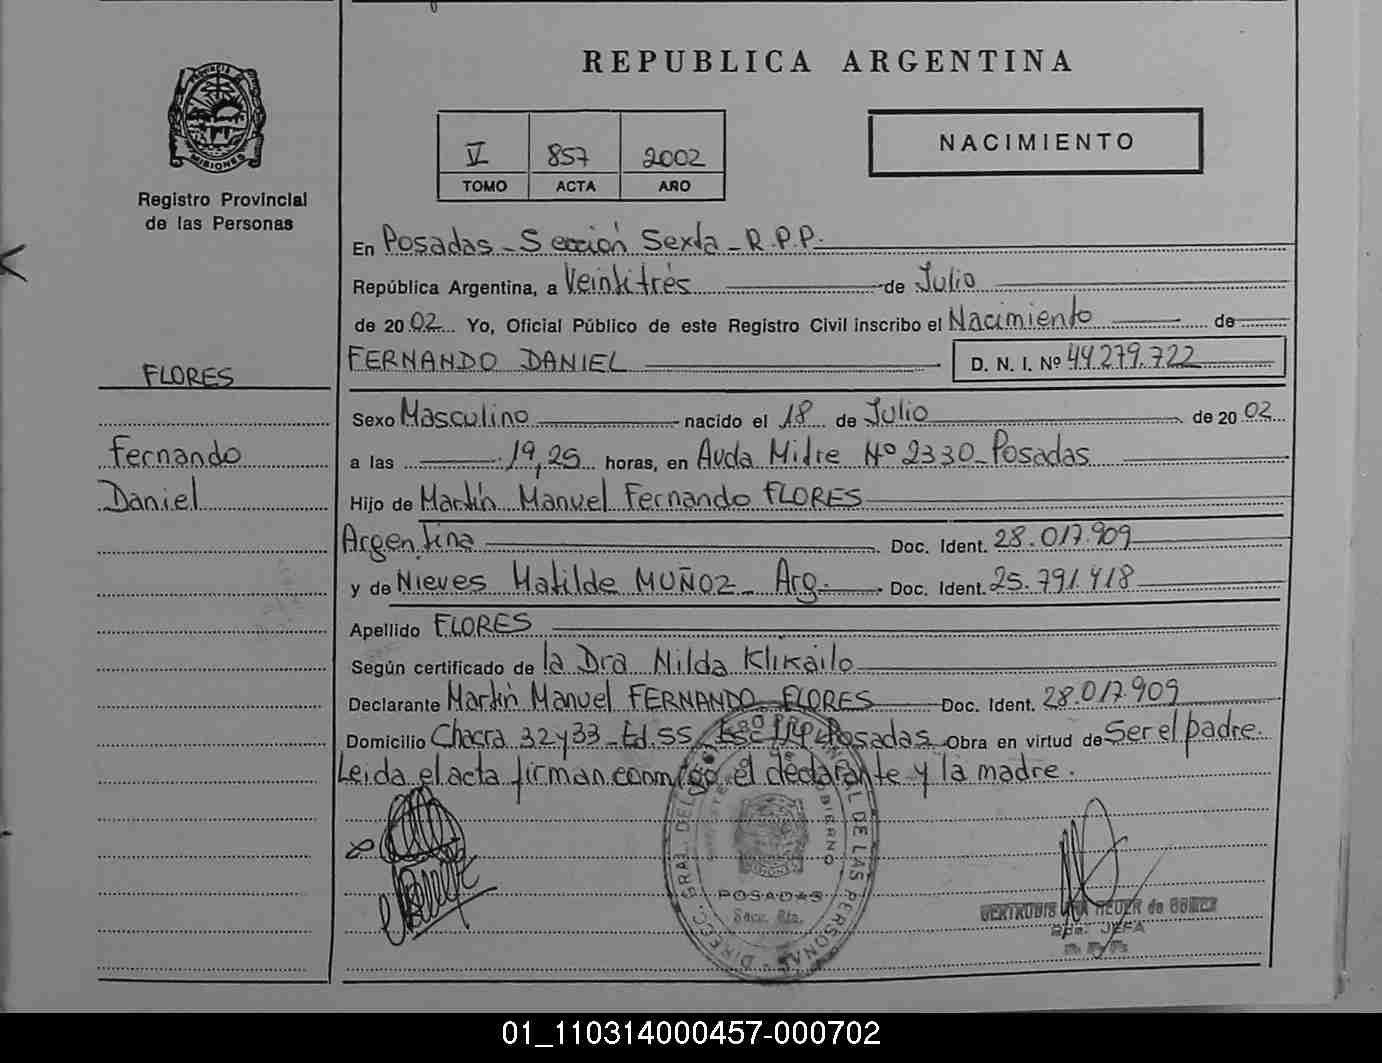 PROVINCIA DE
MISIONES
Registro Provincial
de las Personas
FLORES
Fernando
Daniel
REPUBLICA ARGENTINA
V 857 2002
TOMO ACTA AÑO
NACIMIENTO
En Posadas - Sección Sexta - R.P.P.
República Argentina, a Veintitrés de Julio
de 2002 Yo, Oficial Público de este Registro Civil inscribo el Nacimiento de
FERNANDO DANIEL D. N. I. Nº 44.279.722
Sexo Masculino nacido el 18 de Julio de 2002
a las 19,25 horas, en Avda Mitre Nº 2330 - Posadas
Hijo de Martín Manuel Fernando FLORES
Argentina Doc. Ident. 28.017.909
y de Nieves Matilde MUÑOZ - Arg. Doc. Ident. 25.791.418
Apellido FLORES
Según certificado de la Dra Nilda Klikailo
Declarante Martín Manuel FERNANDO FLORES Doc. Ident. 28.017.909
Domicilio Chacra 32y33 - Ed.55 - Posadas Obra en virtud de Ser el padre.
Leida el acta firman conmigo el declarante y la madre.
DIREC. GRAL. DEL PROVINCIAL DE LAS PERSONAS
GOBIERNO
MISIONES
POSADAS
Secc. 6ta.
GERTRUDIS de GOMEZ
JEFA
01_110314000457-000702